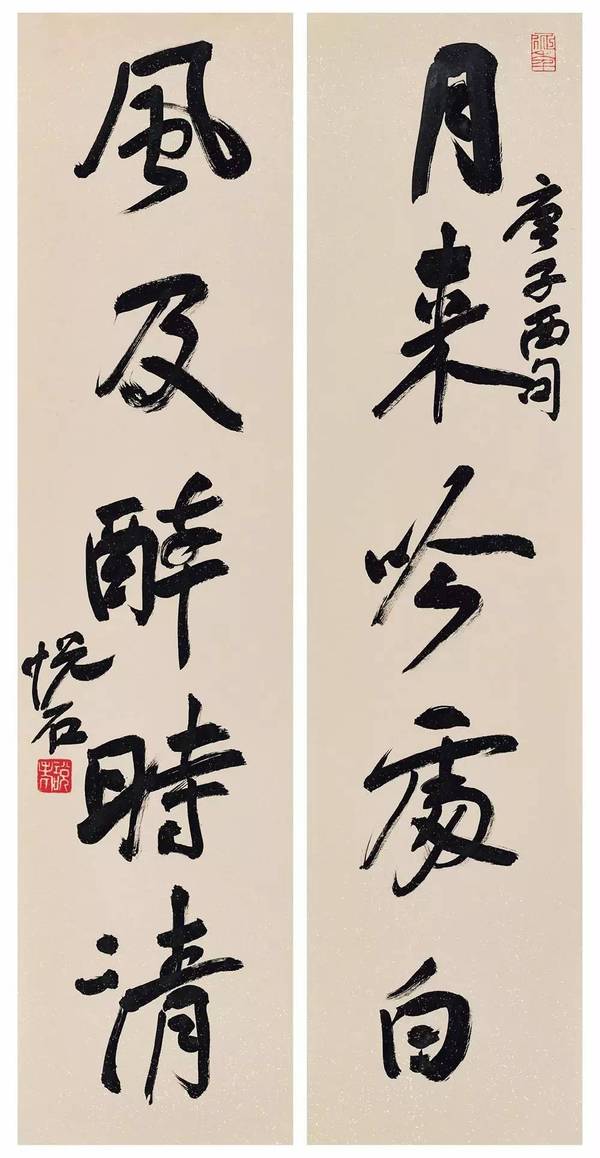 月来吟處白
庚子西旬
風及醉時清
悦石